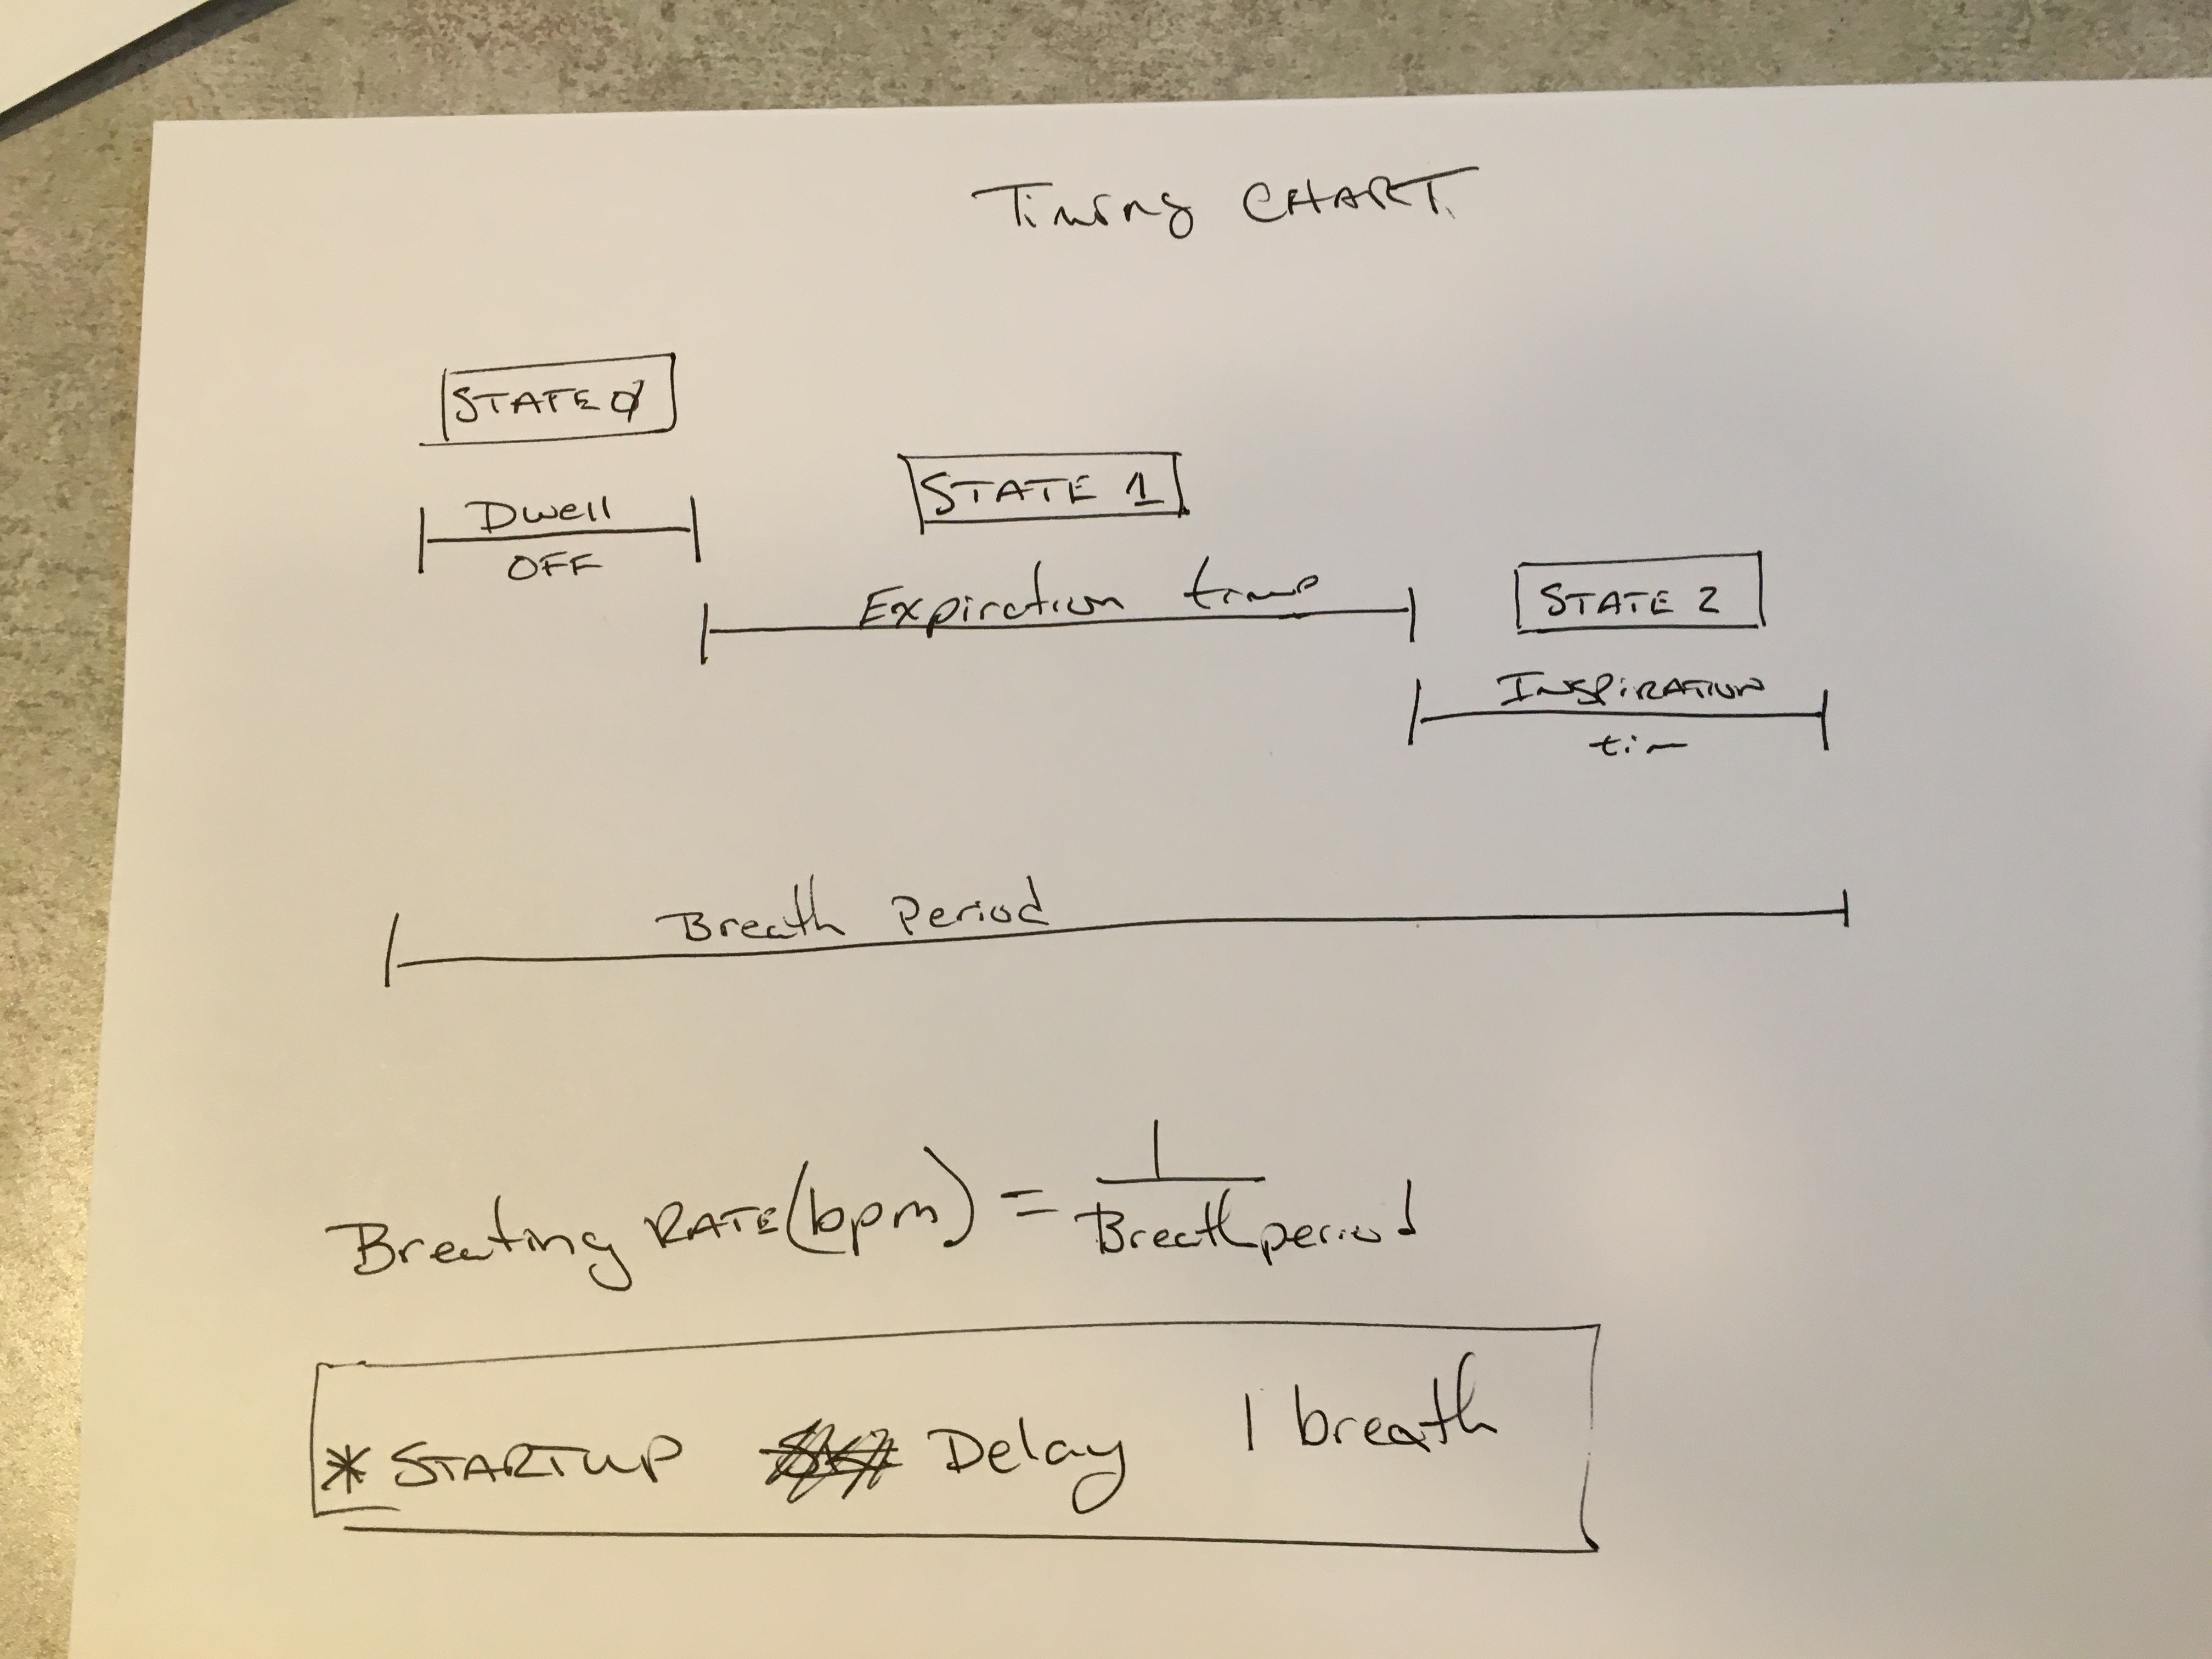 Timing CHART
STATE 0
Dwell
OFF
STATE 1
Expiration time
STATE 2
INSPIRATION
tim
Breath Period
Breating RATE (bpm) = 1
Breath period
* STARTUP Delay 1 breath